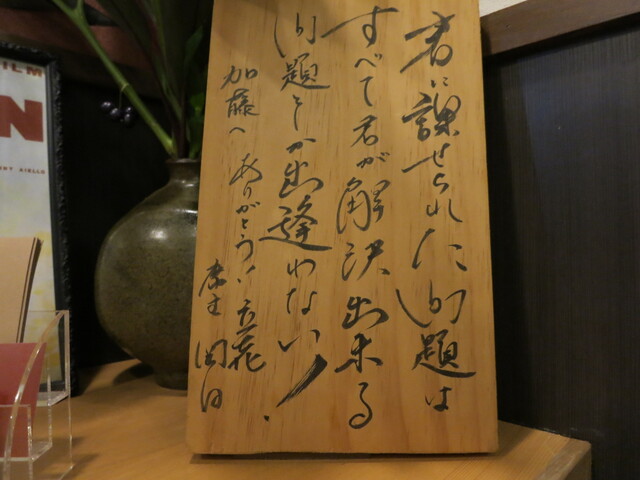 君に課せられた問題は
すべて君が解決出来る
問題しか出逢わない!
加藤へ ありがとう!! 立花
ILM
N
ENT AIELLO